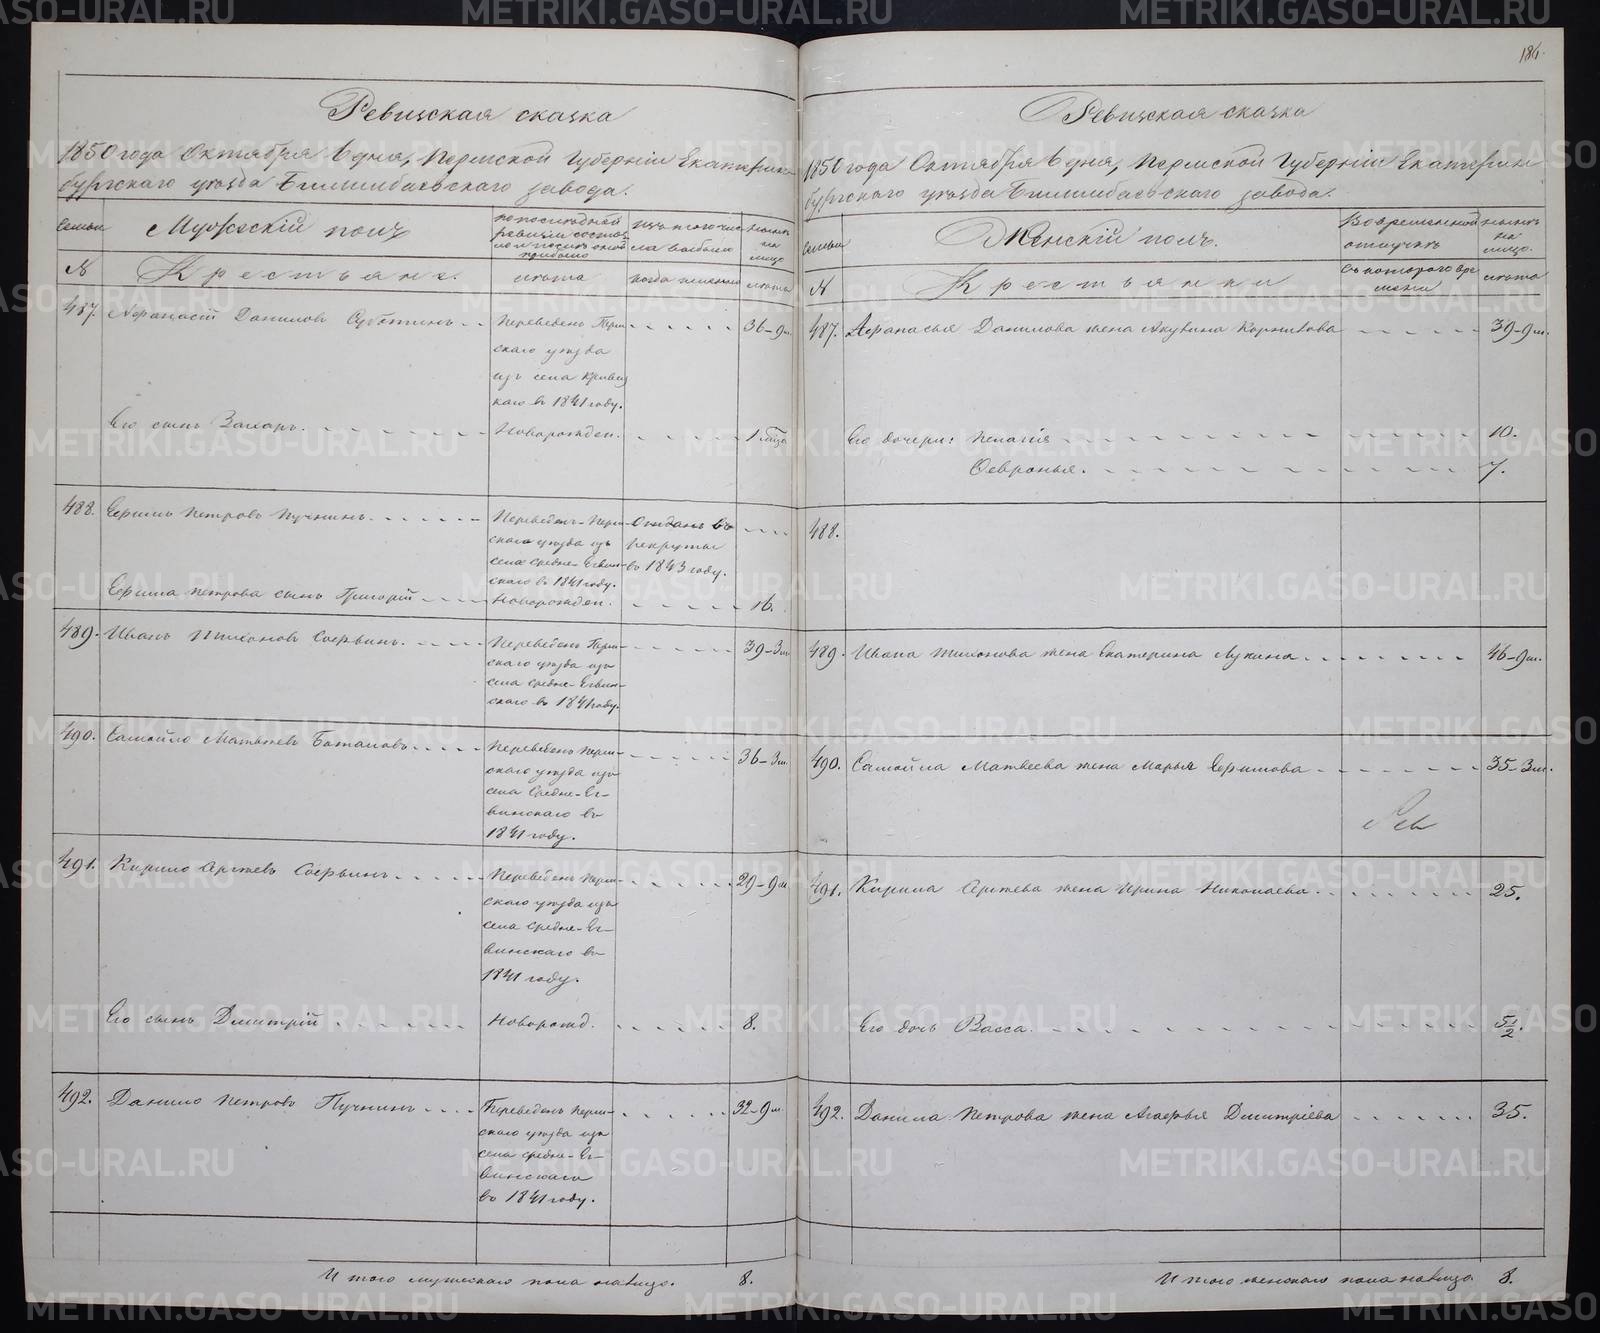 Ревизская сказка
1850 года Октября 6 дня, Пермской Губерніи Екатерин-
бургскаго уѣзда Билимбаевскаго завода.
семьи
Мужескій полъ
по последней
ревизіи состоя-
ло и после оной
прибыло
изъ того чис-
ла выбыло
нынѣ
на
лицо
№
Крестьяне.
лѣта
когда именно
лѣта
487. Афанасій Даниловъ Субботинъ
Переведенъ Перм-
скаго уѣзда
изъ села
въ 1841 году.
36-9м.
Его сынъ Захаръ.
Новорожден.
1
488. Ефимъ Петровъ Пучнинъ.
Переведенъ Перм-
скаго уѣзда изъ
села Средне-Егвин-
скаго въ 1841 году.
Отданъ въ
рекруты
въ 1843 году.
Ефима Петрова сынъ Григорій
Новорожден.
489. Иванъ Тихоновъ
Переведенъ Перм-
скаго уѣзда изъ
села Средне-Егвин-
скаго въ 1841 году.
39-3м.
490. Самойло Матвѣевъ Боталовъ.
Переведенъ Перм-
скаго уѣзда изъ
села Средне-Ег-
винскаго въ
1841 году.
36-3м.
491. Кирило Сергѣевъ
Переведенъ Перм-
скаго уѣзда изъ
села Средне-Ег-
винскаго въ
1841 году.
29-9м.
Его сынъ Дмитрій
Новорожд.
8.
492. Данило Петровъ Пучнинъ
Переведенъ Перм-
скаго уѣзда изъ
села Средне-Ег-
винскаго
въ 1841 году.
32-9м.
Итого мужескаго пола налицо.
8.
184.
Ревизская сказка
1850 года Октября 6 дня, Пермской Губерніи Екатерин-
бургскаго уѣзда Билимбаевскаго завода.
семьи
Женскій полъ.
Во временной
отлучкѣ
нынѣ
на
лицо.
№
Крестьянки
съ котораго вре-
мени
лѣта
487. Афанасья Данилова жена Акулина Корнилова
39-9м.
Его дочери: Пелагія
10.
Февронья.
7.
488.
489. Ивана Тихонова жена Екатерина Лукина
46-9м.
490. Самойла Матвеева жена Марья Ефимова
35-3м.
491. Кирила Сергѣева жена Ирина Николаева
25.
Его дочь Васса.
5 1/2.
492. Данила Петрова жена Агафья Дмитріева
35.
Итого женскаго пола налицо.
8.
METRIKI.GASO-URAL.RU